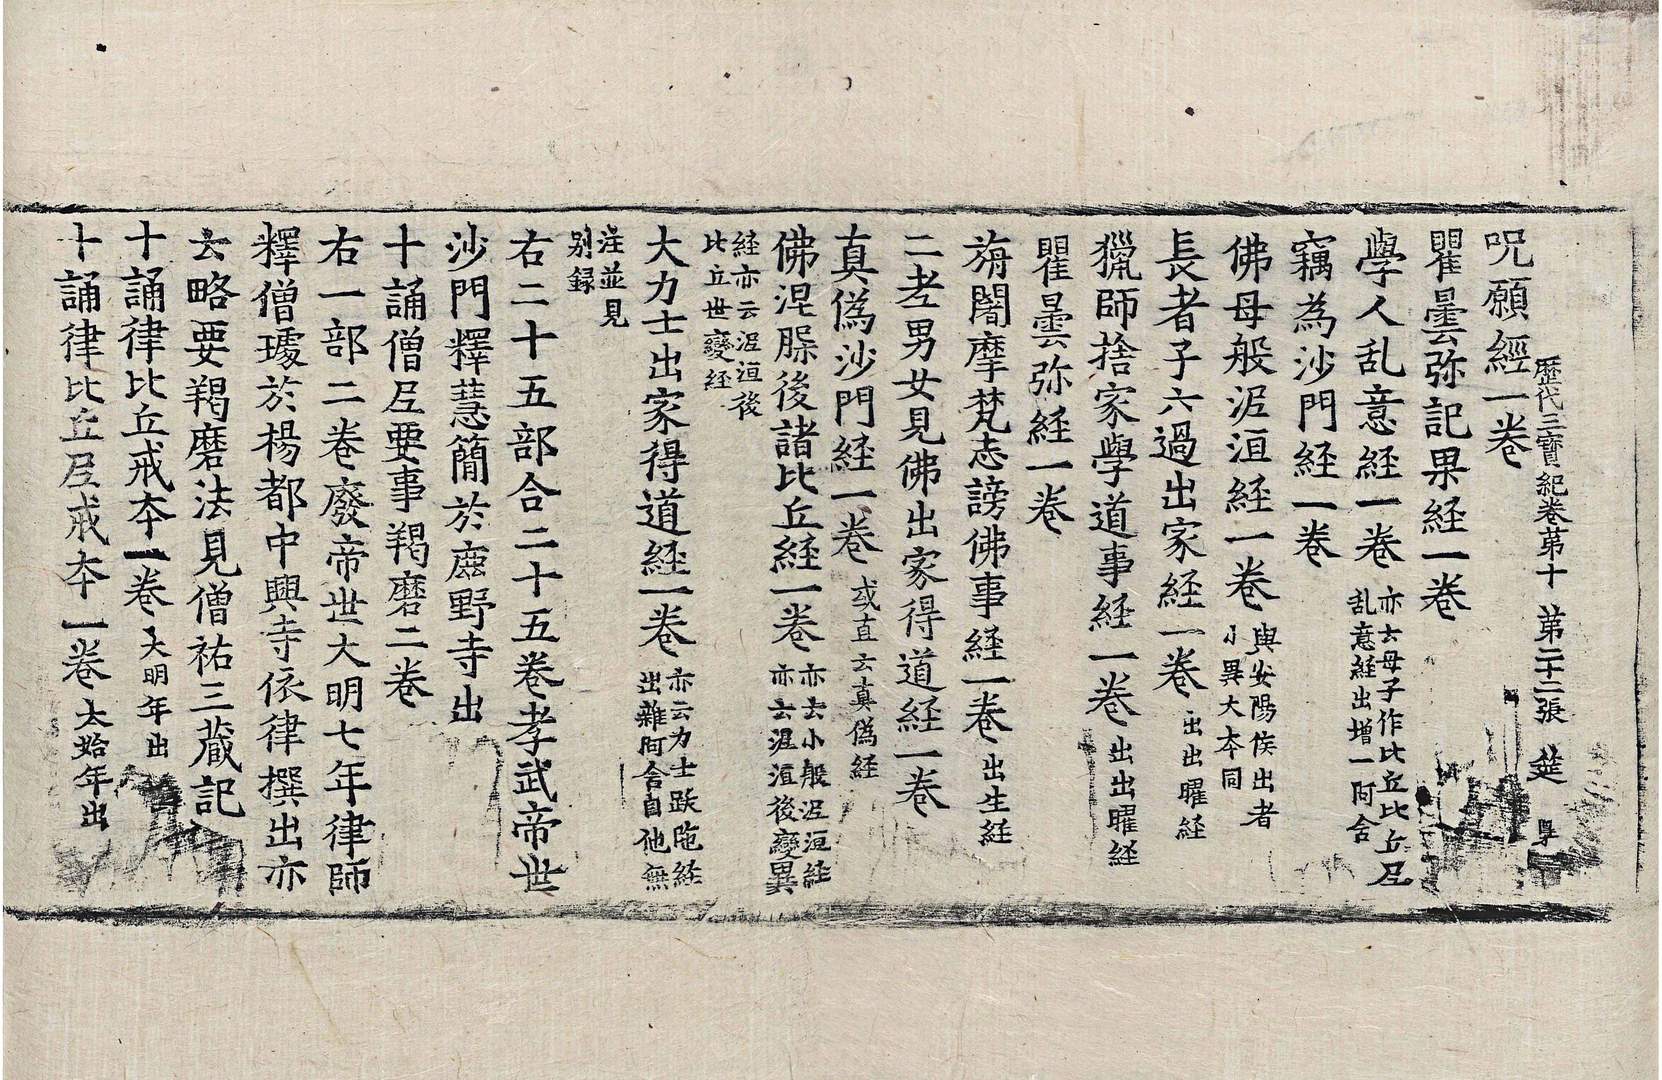 歷代三寶紀卷苐十 苐二十二張 筵
呪願經一卷
瞿曇弥記果経一卷
學人乱意経一卷 亦云母子作比丘比丘尼
乱意経出增一阿含
竊為沙門経一卷
佛母般泥洹経一卷 與安陽侯出者
小異大夲同
長者子六過出家経一卷 出出曜経
獵師捨家學道事経一卷 出出曜経
瞿曇弥経一卷
旃闍摩梵志謗佛事経一卷 出生経
二老男女見佛出家得道経一卷
真偽沙門経一卷 或直云真偽経
佛涅槃後諸比丘経一卷 亦云小般泥洹経
亦云泥洹後變異
経亦云泥洹後
比丘世變経
大力士出家得道経一卷 亦云力士䟦陁経
出雜阿含自他無
注並見
别録
右二十五部合二十五卷孝武帝世
沙門釋慧簡於鹿野寺出
十誦僧尼要事羯磨二卷
右一部二卷廢帝世大明七年律師
釋僧璩於楊都中興寺依律撰出亦
云略要羯磨法見僧祐三藏記
十誦律比丘戒夲一卷 大明年出
十誦律比丘尼戒夲一卷 太始年出